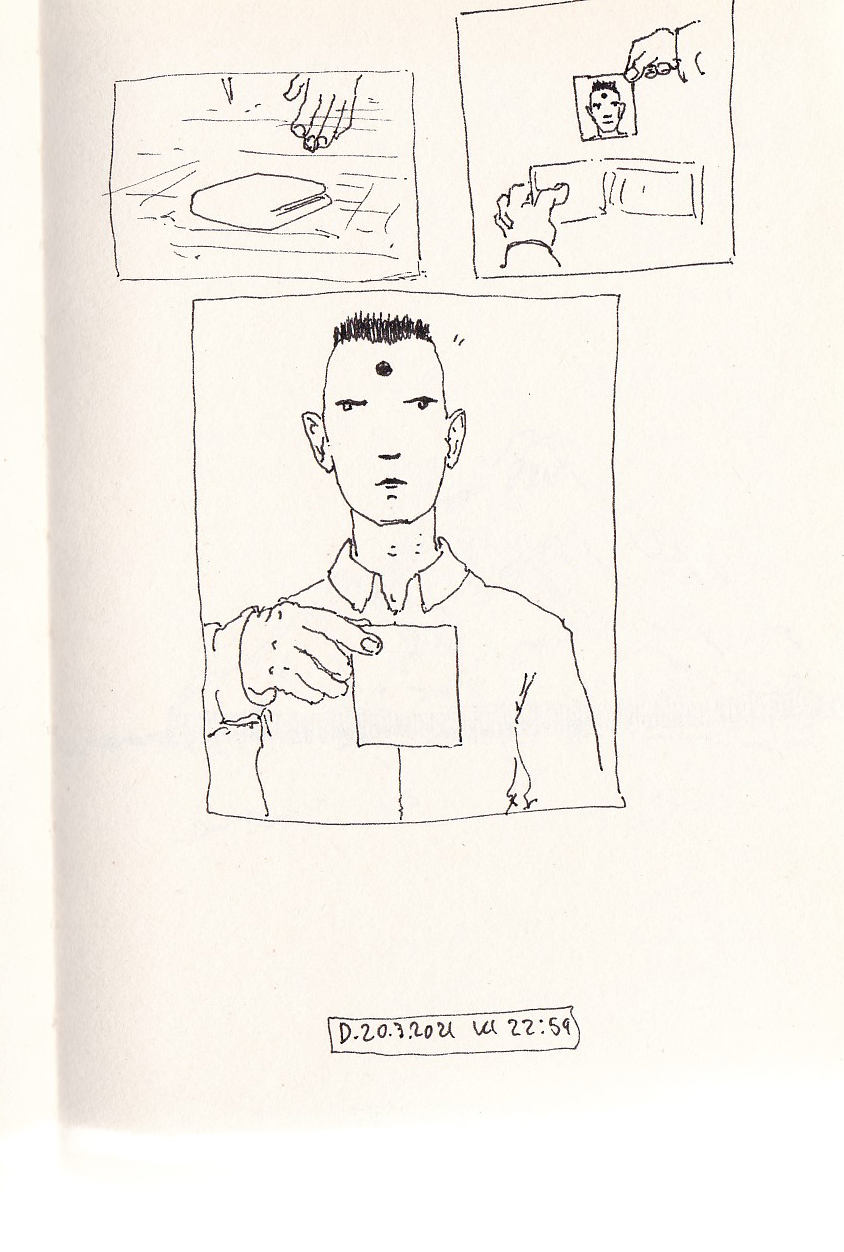 D.20.7.2021 kl 22:59